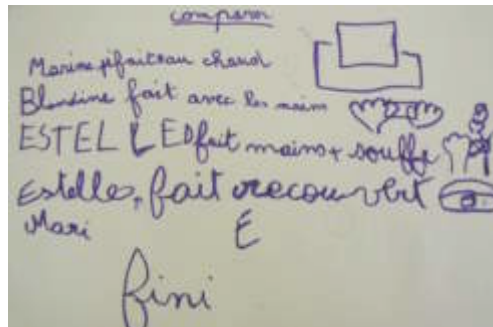 comparer
Marine fait au chaud
Blandine fait avec les mains
ESTELLE D fait mains + souffle
Estelle, fait recouvert
Mari É
fini